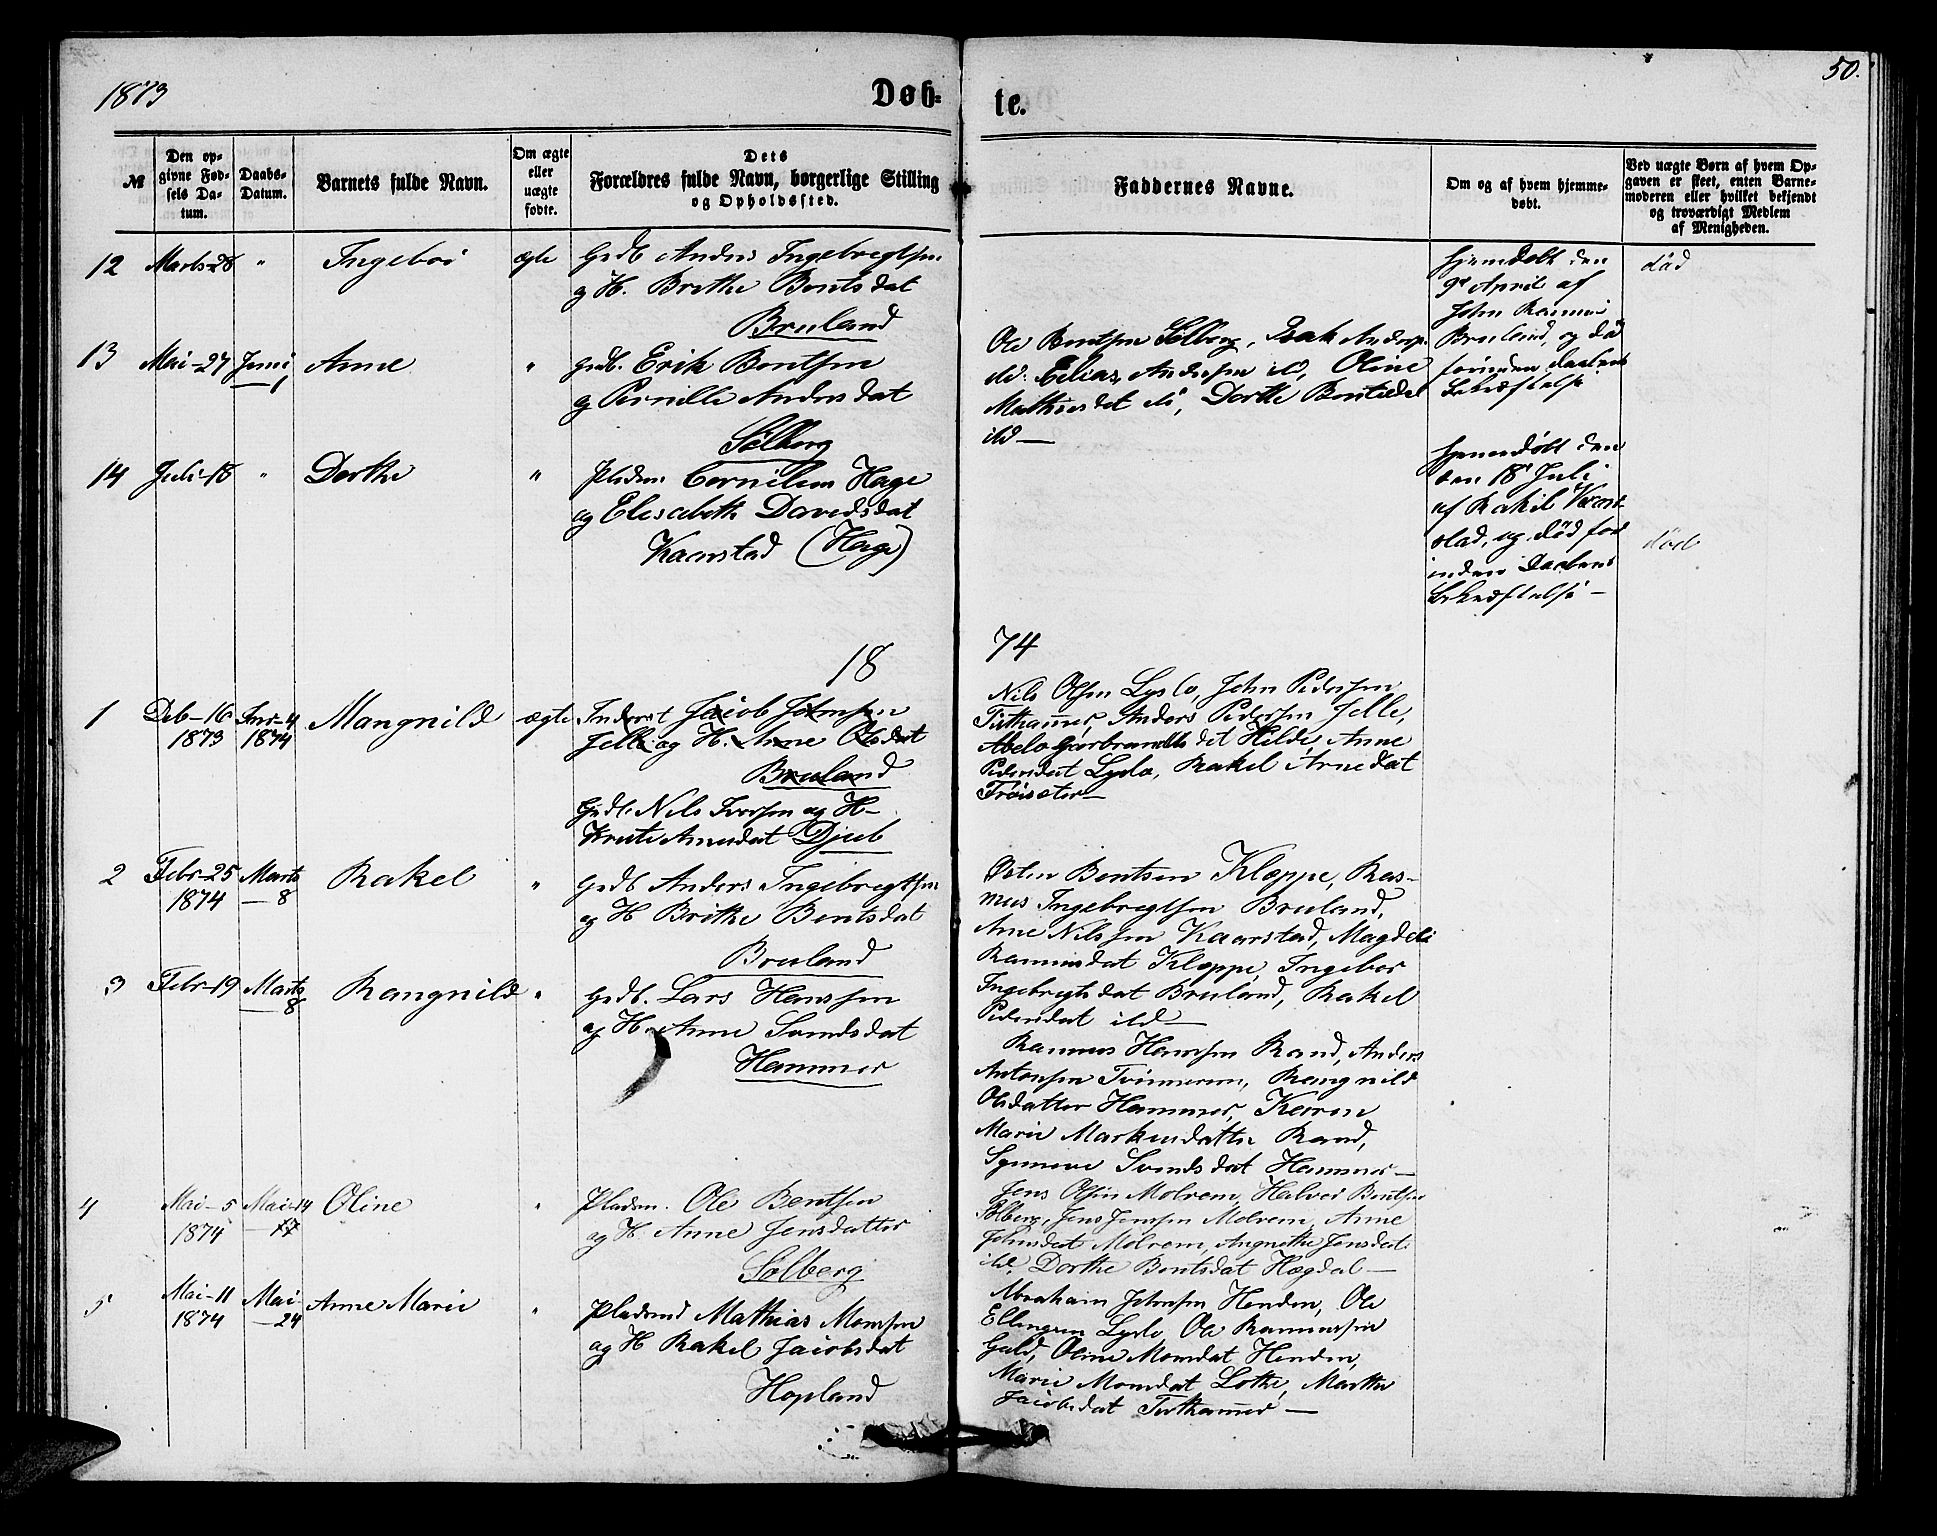 1873
Døb-
te.
50.
№
Den op-
givne Fød-
sels Da-
tum.
Daabs-
Datum.
Barnets fulde Navn.
Om ægte
eller
uægte
fødte.
Dets
Forældres fulde Navn, borgerlige Stilling
og Opholdssted.
Faddernes Navne.
Om og af hvem hjemme-
døbt.
Ved uægte Børn af hvem Op-
gaven er skeet, enten Barne-
moderen eller hvilket bekjendt
og troværdigt Medlem
af Menigheden.
12 Marts 28 " Ingebor ægte Grdb Anders Ingebregtsen
og H. Brithe Bentsdat
Bruland
hjemdøbt den
9de April af
John Rasmus
Bruland, og død
forinden Daabens
Bekræftelse
død
13 Mai-27 Juni 1 Anne " Grdb. Erik Bentsen
og Pernille Andersdat
Solberg
Ole Bentsen Solberg, Isak Anders.
ild. Elias Andersen ild, Oline
Mathiasdat ib, Dorthe Bentsdat
ild —
14 Juli-18 " Dorthe " Pladsm. Cornilius Hage
og Elisabeth Davidsdat
Kaarstad (Hage)
hjemmedøbt den
den 18 Juli
af Rakel Kaar-
stad, og død for
inden Daabens
Bekræftelse —
død
18
74
1 Deb-16 1873 Jnr-4 1874 Mangnild ægte Inderst Jacob Johnsen
Jelle og H. Anne Olsdat
Bruland
Grdb. Nils Iversen og H-
Kristi Arnesdat Djub
Nils Olsen Lyslo, John Pedersen
Tisthammer, Anders Pedersen Jelle,
Abelo Gerbrandts dat Hilde, Anne
Pedersdat Lyslo, Rakel Arnedat
Troisæter —
2 Febr-25 1874 Marts — 8 Rakel " Grdb Anders Ingebregtsen
og H Brithe Bentsdat
Bruland
Bentsen Kleppe, Ras-
mus Ingebregtsen Bruland,
Arne Nilssen Kaarstad, Magdeli
Rasmusdat Kleppe, Ingebor
Ingebregtsdat Bruland, Rakel
Pedersdat ild —
3 Febr-19 Marts 8 Rangnild " Grdb. Lars Hanssen
og H. Anne Svendsdat
Hammer
Rasmus Hanssen Rand, Anders
Antonsen Tvinnerem, Rangnild
Olsdatter Hammer, Karen
Marie Markusdatter Rand,
Synneve Svendsdat Hammer —
4 Mai-5 1874 Mai-14 — 17 Oline " Pladsm. Ole Bentsen
og H Anne Jensdatter
Solberg
Jens Olsen Molvem, Halvor Bentsen
Solberg, Jens Jenssen Molvem, Anne
Johnsdat Molvem, Angnethe Jensdat
ild, Dorthe Bentsdat Hægdal —
5 Mai-11 1874 Mai — 24 Anne Marie " Pladsmd Mathias Monssen
og H Rakel Jacobsdat
Hopland
Abraham Johnsen Henden, Ole
Ellingsen Lyslo, Ole Rasmussen
Gald, Oline Monsdat Henden,
Marie Monsdat Lothe, Marthe
Jacobsdat Tisthammer —